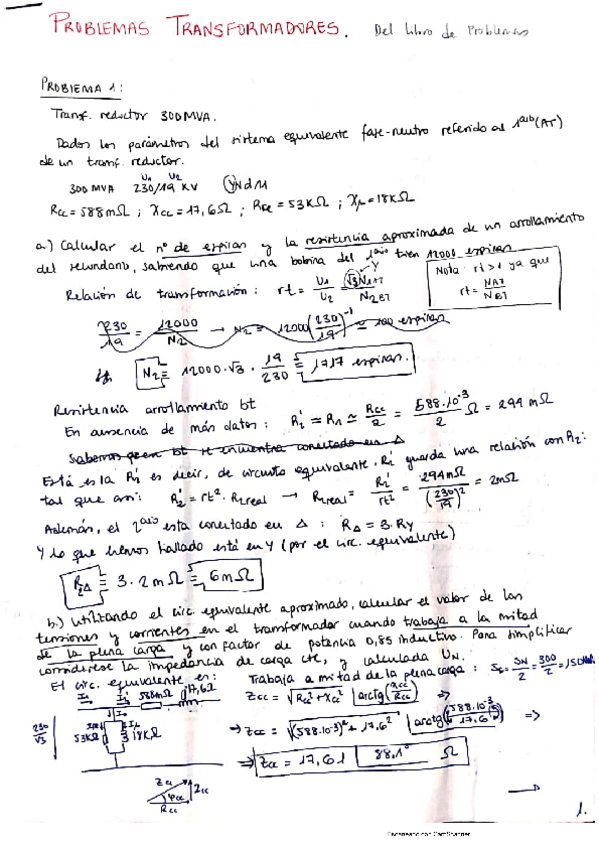 PROBLEMAS TRANSFORMADORES. Del libro de Problemas
PROBLEMA 1:
Transf. reductor 300MVA.
Dados los parámetros del sistema equivalente fase-neutro referido al 1ario (AT)
de un transf. reductor.
U1 U2
300 MVA 230/19 KV YNd11
Rcc = 588mΩ ; Xcc = 17,6Ω ; RFe = 53KΩ ; Xμ = 18KΩ
a.) Calcular el nº de espiras y la resistencia aproximada de un arrollamiento
del secundario, sabiendo que una bobina del 1ario tiene 12000 espiras
Relación de transformación: rt = U1/U2 = √3N1AT/N2BT
Y
Nota: rt>1 ya que
rt = NAT/NBT
230/19 = 12000/N2 → N2 = 12000(230/19)^-1 = espiras
N2 = 12000·√3 · 19/230 = 1717 espiras.
Resistencia arrollamiento bt
En ausencia de más datos: R2' ≃ R1 ≃ Rcc/2 = 588·10^-3/2 Ω = 294 mΩ
Sabemos que en bt se encuentra conectado en Δ
Está es la R2' es decir, de circuito equivalente. R2' guarda una relación con R2:
tal que así: R2' = rt²·R2real → R2real = R2'/rt² = 294mΩ/(230/19)² = 2mΩ
Además, el 2ario esta conectado en Δ : RΔ = 3·RY
Y lo que hemos hallado está en Y (por el circ. equivalente)
R2Δ = 3·2mΩ = 6mΩ
b.) Utilizando el circ. equivalente aproximado, calcular el valor de las
tensiones y corrientes en el transformador cuando trabaja a la mitad
de la plena carga y con factor de potencia 0,85 inductivo. Para simplificar
considerese la impedancia de carga cte, y calculada UN.
El circ. equivalente en: Trabaja a mitad de la plena carga: Sc = SN/2 = 300/2 = 150MVA
588mΩ 17,6Ω
Zcc = √Rcc²+Xcc² |arctg(Xcc/Rcc) ⇒
230/√3
53KΩ 18KΩ
→ Zcc = √(588·10^-3)²+17,6² |arctg(588·10^-3/17,6) ⇒
⇒ Zcc = 17,61 |88,1° Ω
Zcc Xcc
φcc
Rcc
1.
Escaneado con CamScanner